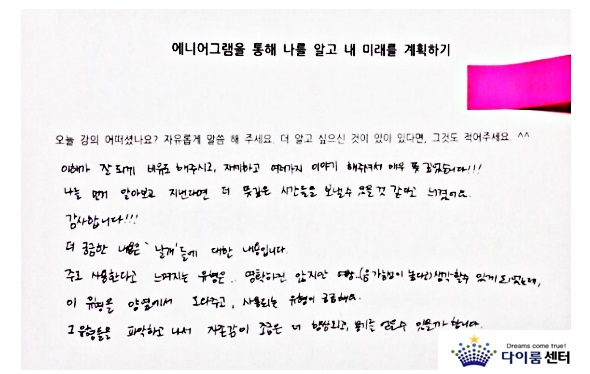 에니어그램을 통해 나를 알고 내 미래를 계획하기
오늘 강의 어떠셨나요? 자유롭게 말씀 해 주세요. 더 알고 싶으신 것이 있이 있다면, 그것도 적어주세요. ^^
이해가 잘 되게 비유도 해주시고, 자세하고 여러가지 이야기 해주셔서 매우 뜻 깊었습니다!!!
나를 먼저 알아보고 지낸다면 더 뜻깊은 시간들을 보낼수 있을것 같다고 느꼈어요.
감사합니다!!!
더 궁금한 내용은 '날개'들에 대한 내용입니다.
주로 사용한다고 느껴지는 유형은.. 명확하진 않지만 생각할수 있게 되었는데,
이 유형을 양옆에서 도와주고, 사용되는 유형이 궁금해요.
그 유형들을 파악하고 나서 자존감이 조금은 더 향상되고, 용기를 얻을수 있을까 합니다.
Dreams come true!
다이룸센터